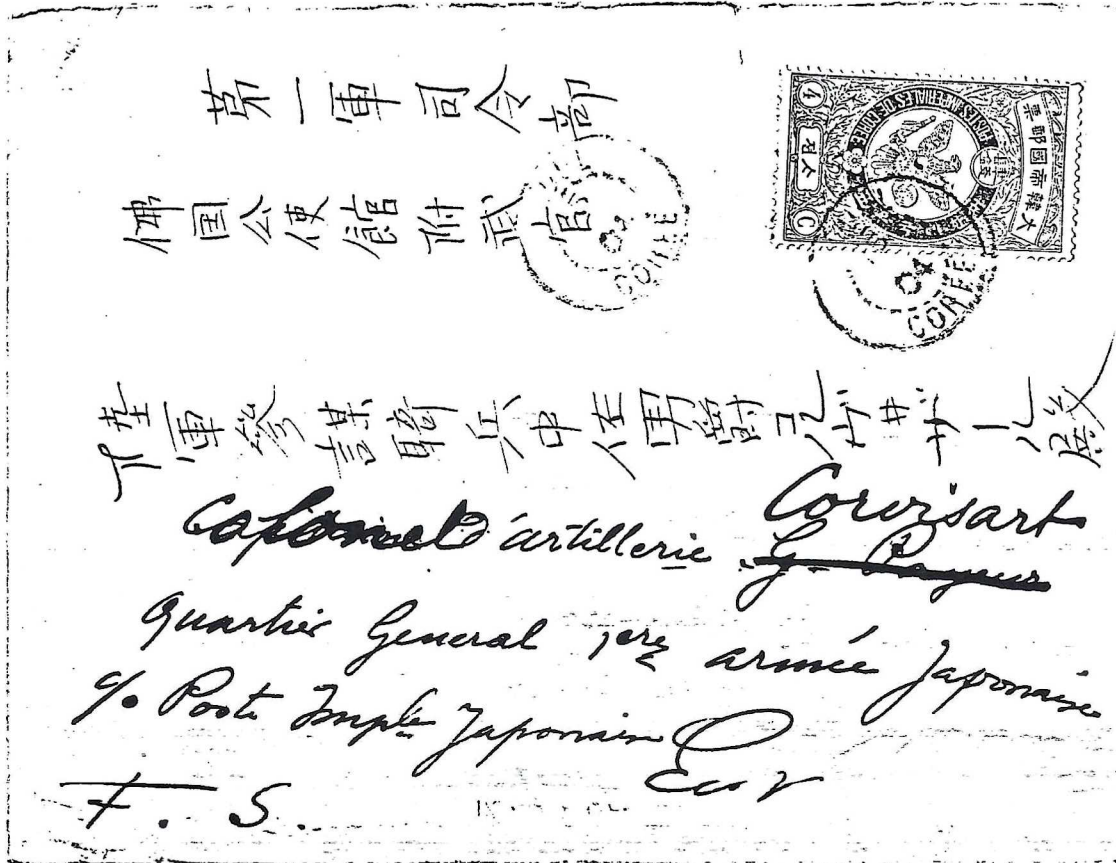 第一軍司令部
佛国公使館附武官
陸軍參謀騎兵中佐男爵コルヴヰザール殿
d'artillerie Corvisart
G. Payeur
Quartier General 1ere armée Japonaise
c/o Poste Imple Japonaise
F. S.
大韓帝國郵票
POSTES IMPERIALES DE COREE
4
C
04
COREE
COREE